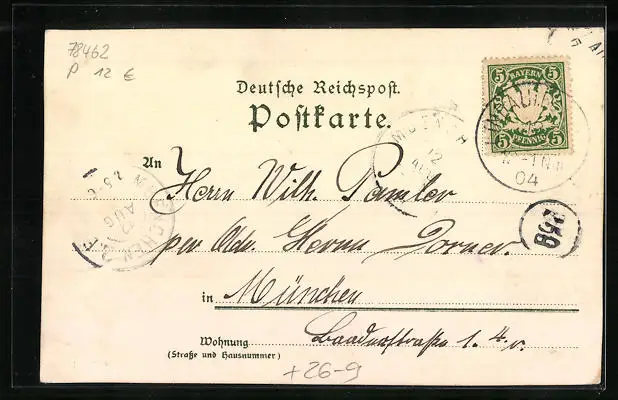 78462
P 12 €
Deutsche Reichspost.
Postkarte.
5 BAYERN 5
5 PFENNIG 5
12
04
MUENCHEN
12
AUG
An
Herrn Wilh. Pamler
per Adr. Herrn Dorner.
in München
Wohnung Baaderstraße 1. 4. r.
(Straße und Hausnummer)
+26-9